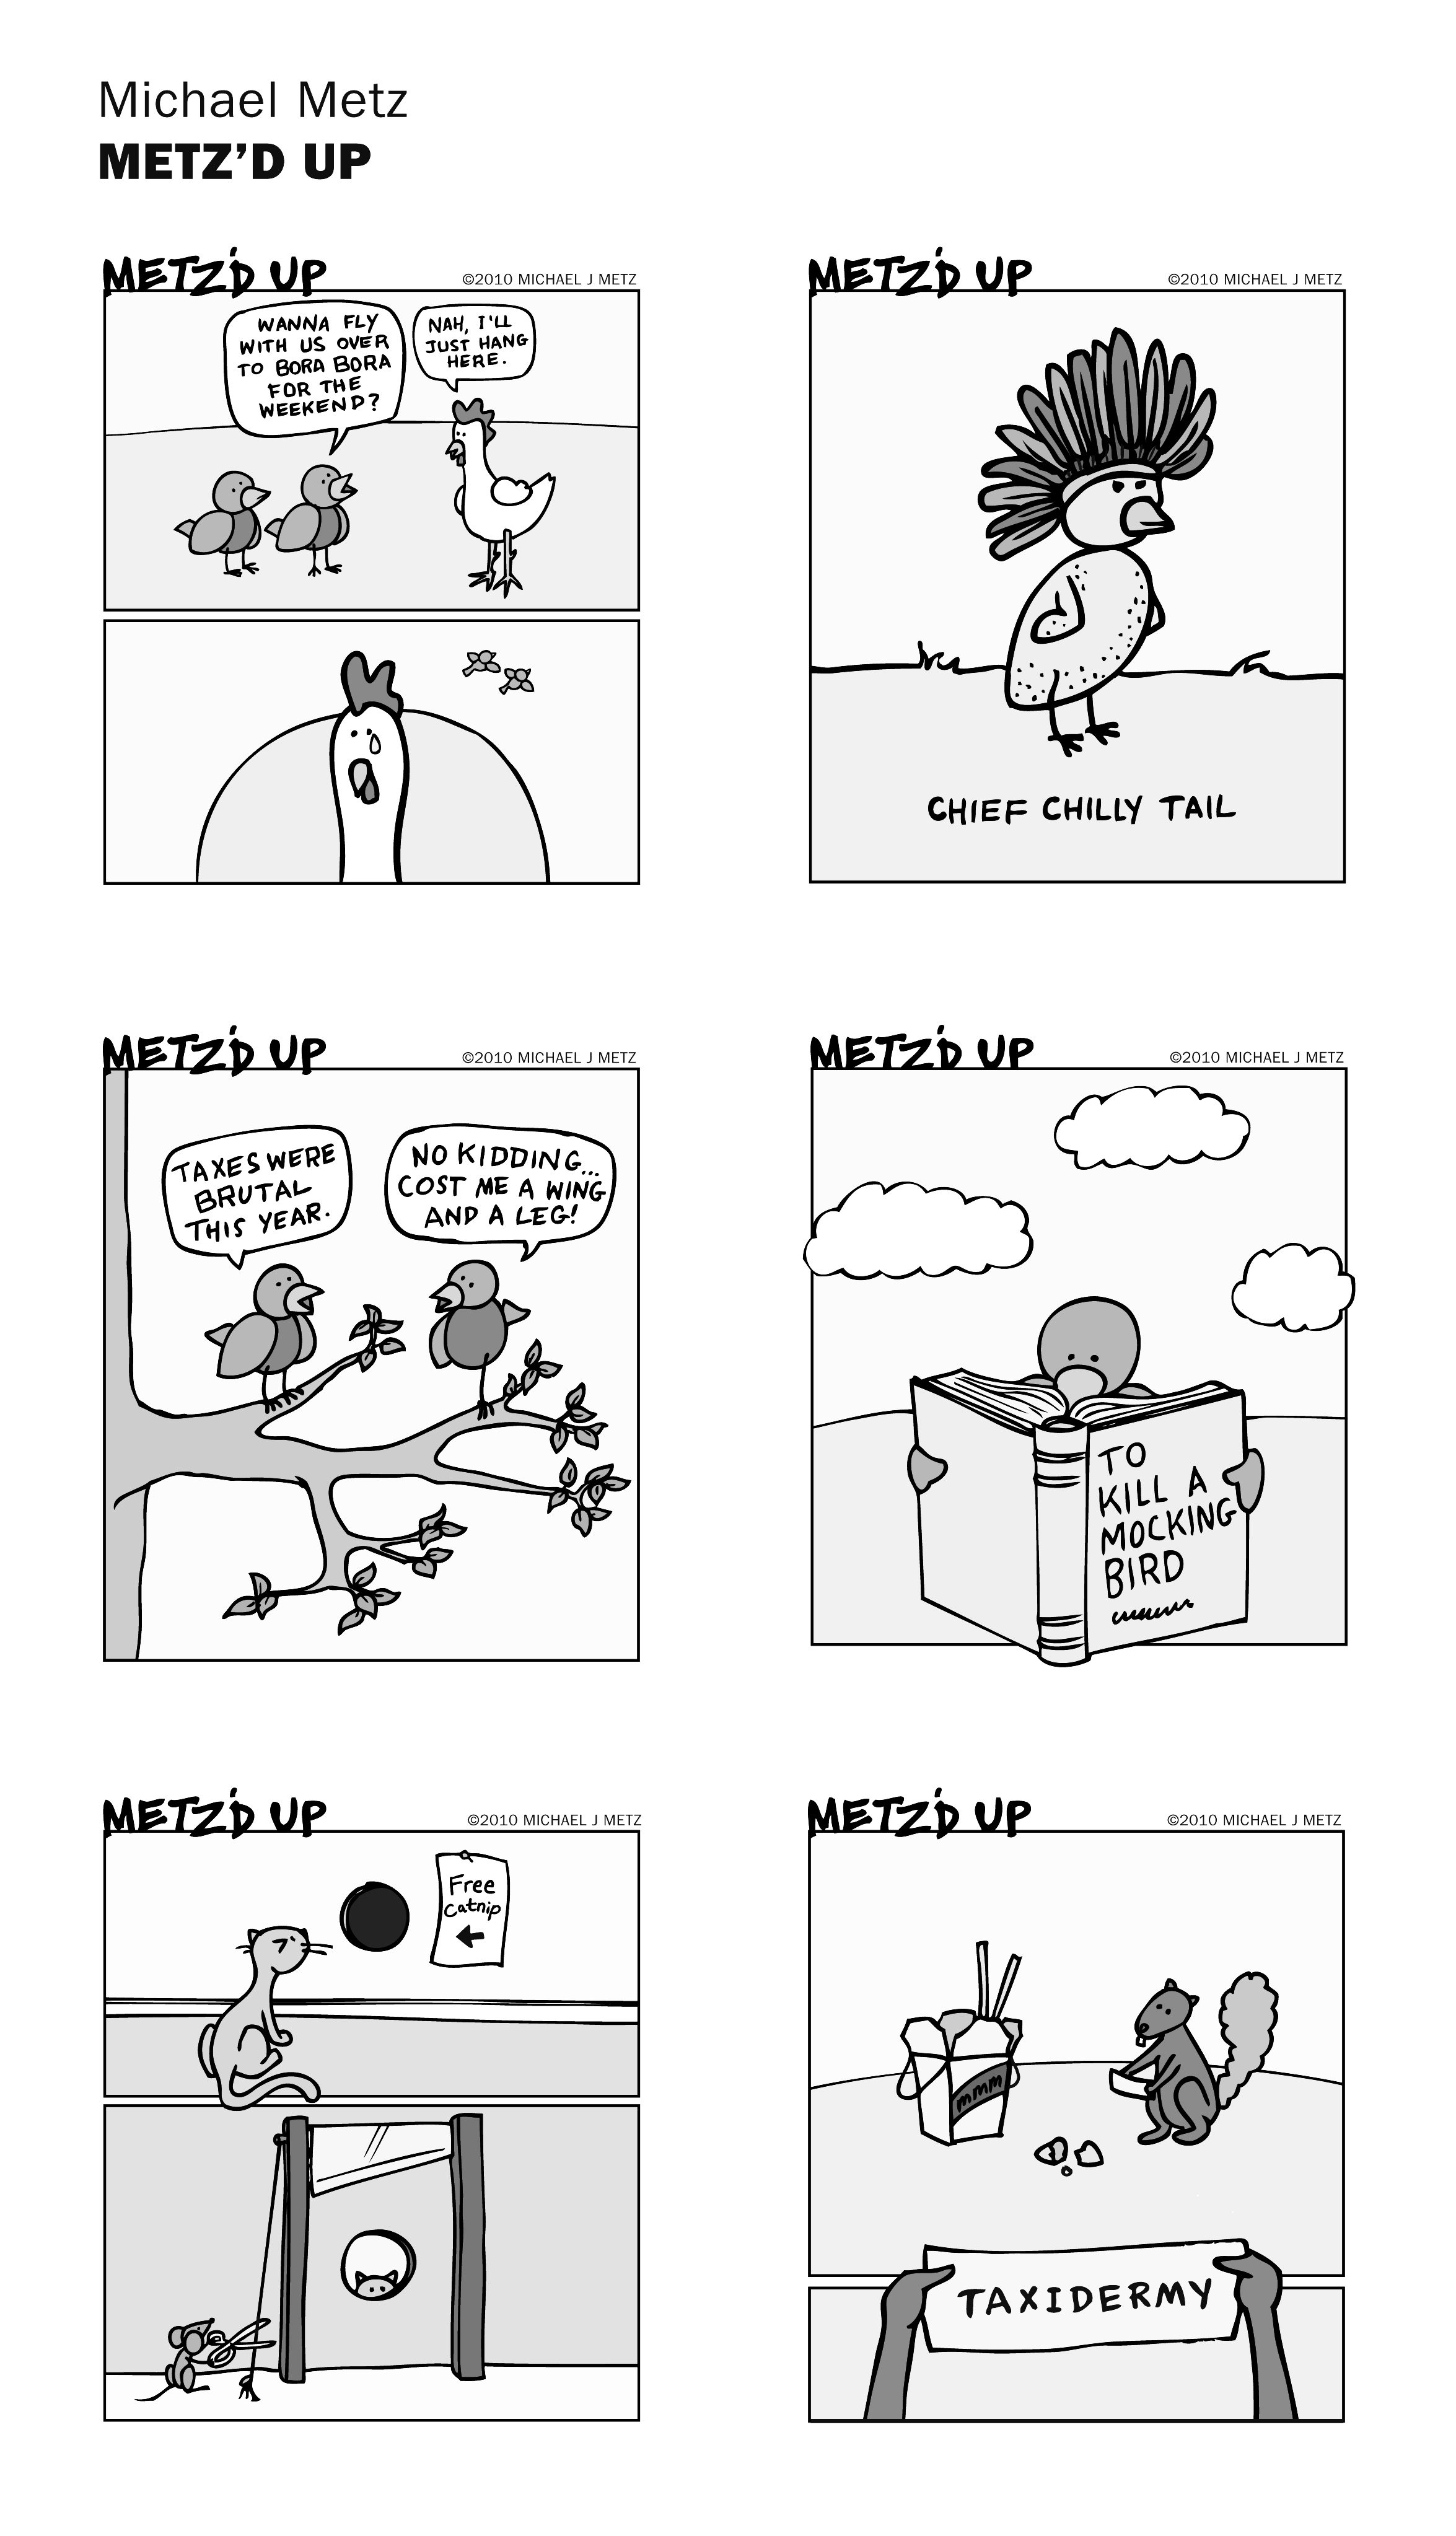 Michael Metz
METZ'D UP
METZ'D UP
©2010 MICHAEL J METZ
WANNA FLY
WITH US OVER
TO BORA BORA
FOR THE
WEEKEND?
NAH, I'LL
JUST HANG
HERE.
METZ'D UP
©2010 MICHAEL J METZ
CHIEF CHILLY TAIL
METZ'D UP
©2010 MICHAEL J METZ
TAXES WERE
BRUTAL
THIS YEAR.
NO KIDDING...
COST ME A WING
AND A LEG!
METZ'D UP
©2010 MICHAEL J METZ
TO
KILL A
MOCKING
BIRD
METZ'D UP
©2010 MICHAEL J METZ
Free
Catnip
METZ'D UP
©2010 MICHAEL J METZ
MMM
TAXIDERMY